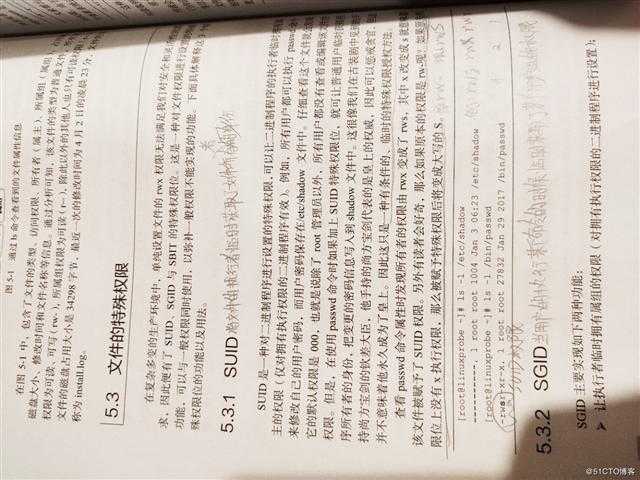 图 5-1 通过 ls 命令查看到的文件属性信息
在图 5-1 中，包含了文件的类型、访问权限、所有者（属主）、所属组（属组）
磁盘大小、修改时间和文件名称等信息。通过分析可知，该文件的类型为普通文件
权限为可读、可写（rw-），所属组权限为可读（r--），除此以外的其他人也只有可读
文件的磁盘占用大小是 34298 字节，最近一次的修改时间为 4 月 2 日的凌晨 23 分，文
称为 install.log。
5.3 文件的特殊权限
在复杂多变的生产环境中，单纯设置文件的 rwx 权限无法满足我们对安全和灵
求，因此便有了 SUID、SGID 与 SBIT 的特殊权限位。这是一种对文件权限进行设置
功能，可以与一般权限同时使用，以弥补一般权限不能实现的功能。下面具体解释这
殊权限位的功能以及用法。
5.3.1 SUID
SUID 是一种对二进制程序进行设置的特殊权限，可以让二进制程序的执行者临时
主的权限（仅对拥有执行权限的二进制程序有效）。例如，所有用户都可以执行 passwd
来修改自己的用户密码，而用户密码保存在/etc/shadow 文件中。仔细查看这个文件就
它的默认权限是 000，也就是说除了 root 管理员以外，所有用户都没有查看或编辑该文
权限。但是，在使用 passwd 命令时如果加上 SUID 特殊权限位，就可让普通用户临时
序所有者的身份，把变更的密码信息写入到 shadow 文件中。这很像我们在古装剧中见
持尚方宝剑的钦差大臣，他手持的尚方宝剑代表的是皇上的权威，因此可以惩戒贪官，
并不意味着他永久成为了皇上。因此这只是一种有条件的、临时的特殊权限授权方法
查看 passwd 命令属性时发现所有者的权限由 rwx 变成了 rws，其中 x 改变成 s 就
该文件被赋予了 SUID 权限。另外有读者会好奇，那么如果原本的权限是 rw-呢？如果
限位上没有 x 执行权限，那么被赋予特殊权限后将变成大写的 S。
[root@linuxprobe ~]# ls -l /etc/shadow
----------. 1 root root 1004 Jan 3 06:23 /etc/shadow
[root@linuxprobe ~]# ls -l /bin/passwd
-rwsr-xr-x. 1 root root 27832 Jan 29 2017 /bin/passwd
5.3.2 SGID
SGID 主要实现如下两种功能：
➤ 让执行者临时拥有属组的权限（对拥有执行权限的二进制程序进行设置）；
@51CTO博客